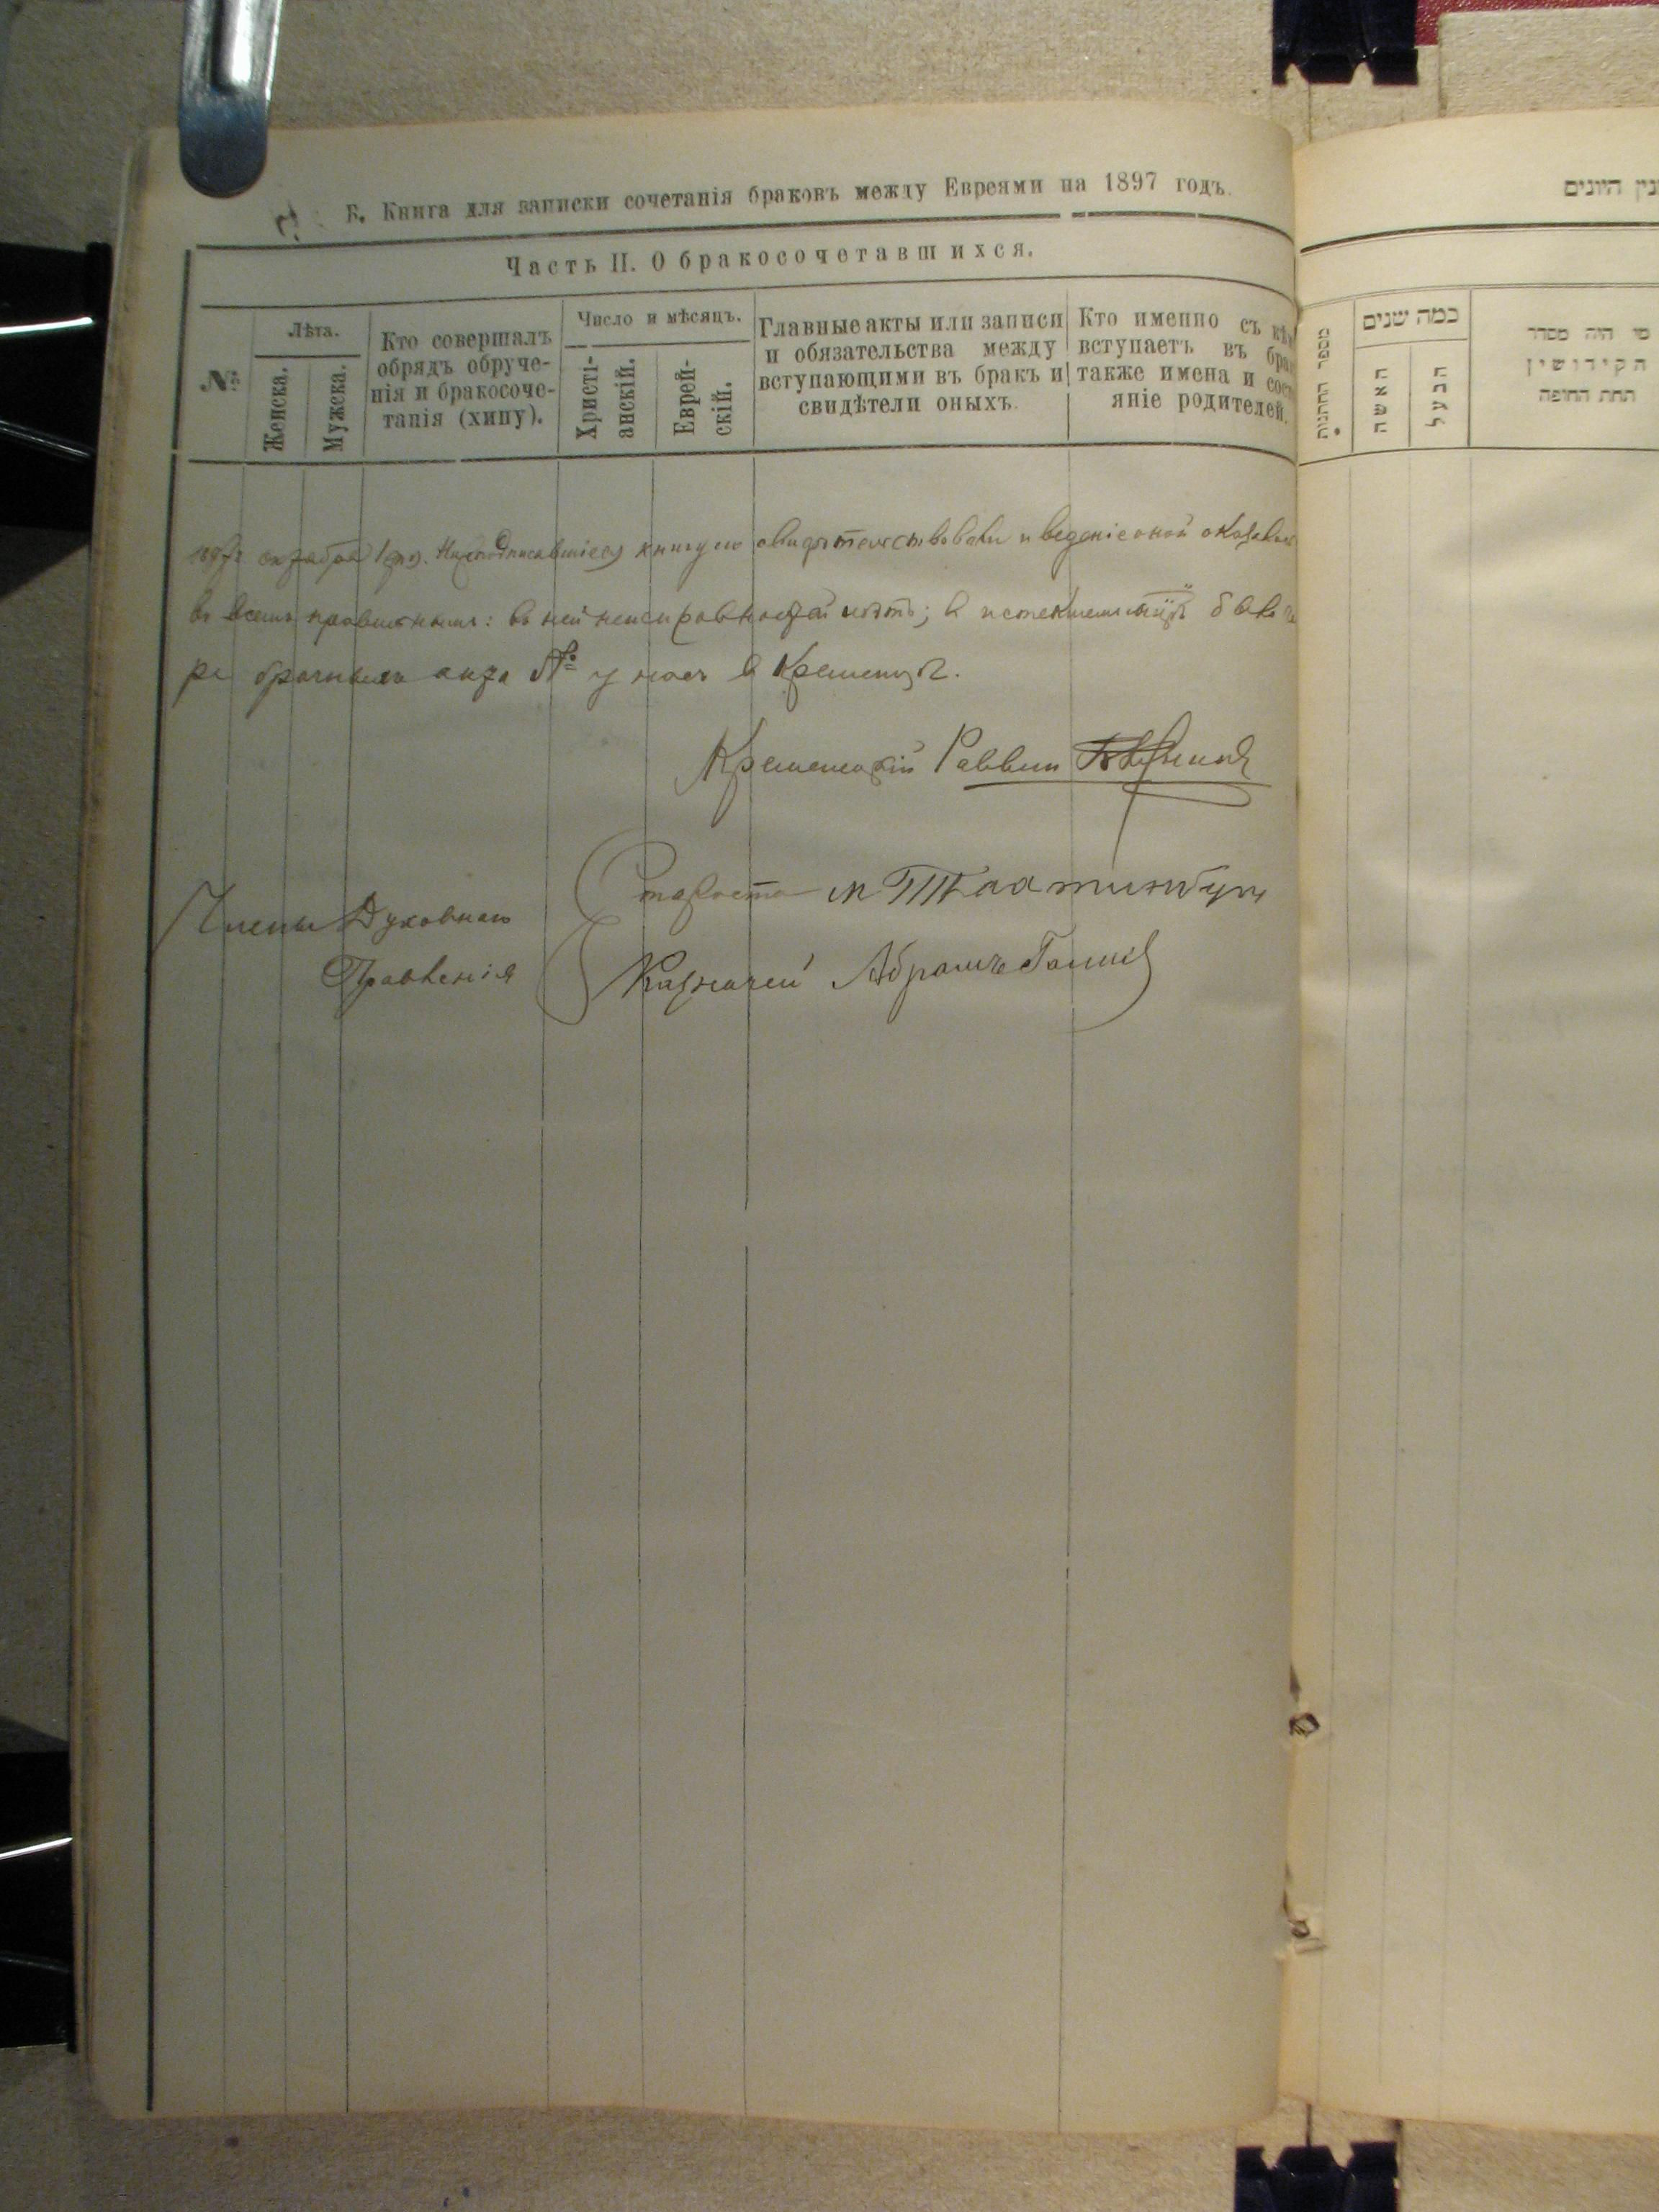 Б. Книга для записки сочетанія браковъ между Евреями на 1897 годъ.
Часть II. О бракосочетавшихся.
№
Лѣта.
Женска.
Мужска.
Кто совершалъ
обрядъ обруче-
нія и бракосоче-
танія (хипу).
Число и мѣсяцъ.
Христі-
анскій.
Еврей-
скій.
Главные акты или записи
и обязательства между
вступающими въ бракъ и
свидѣтели оныхъ.
Кто именно съ
вступаетъ въ
также имена и
яніе родителей.
1897 октября книгу сію свидѣтельствовали и веденіе оной
во всемъ правильнымъ: въ ней неисправностей нѣтъ; в
ре брачныхъ акта № у насъ в Кременцѣ.
Кременецкій Раввин
Староста
Члены Духовнаго
Правленія
Казначей Абрамъ
כמה שנים
האשה
הבעל
מי היה מסדר
הקידושין
תחת החופה